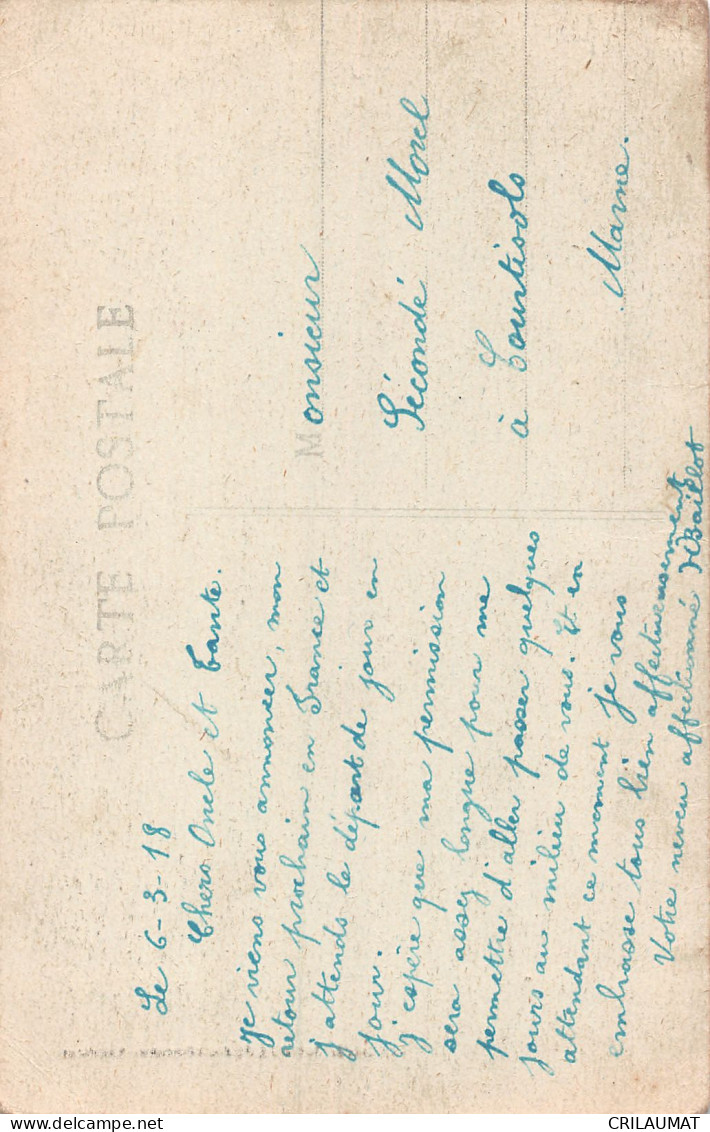 CARTE POSTALE
Le 6-3-18
Chers Oncle et Tante.
Je viens vous annoncer, mon
retour prochain en France et
j'attends le départ de jour en
jour.
J'espère que ma permission
sera assez longue pour me
permettre d'aller passer quelques
jours au milieu de vous. Et en
attendant ce moment je vous
embrasse tous bien affectueusement
Votre neveu affectionné Baillot
Monsieur
Sécondé Morel
à Courtisols
Marne.
CRILAUMAT